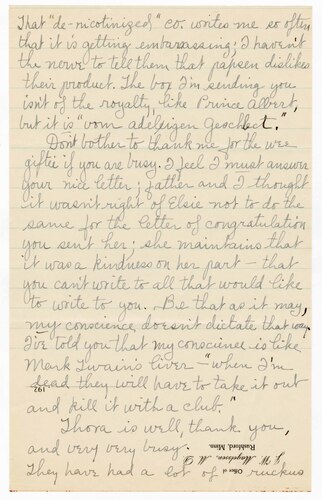 That "de-nicotinized" co. writes me so often
that it is getting embarassing; I haven't
the nerve to tell them that papsen dislikes
their product. The box I'm sending you
isn't of the royalty, like Prince Albert,
but it is "vom adeligen Geschlect."
Don't bother to thank me for the wee
giftie if you are busy. I feel I must answer
your nice letter; father and I thought
it wasn't right of Elsie not to do the
same for the letter of congratulation
you sent her; she maintains that
it was a kindness on her part – that
you can't write to all that would like
to write to you. Be that as it may,
my conscience doesn't dictate that way.
I've told you that my conscience is like
Mark Twain's liver – "when I'm
dead they will have to take it out
and kill it with a club."
Thora is well, thank you,
and very very busy.
They have had a lot of ruckus
Office of
M. D.
Rushford, Minn.
192